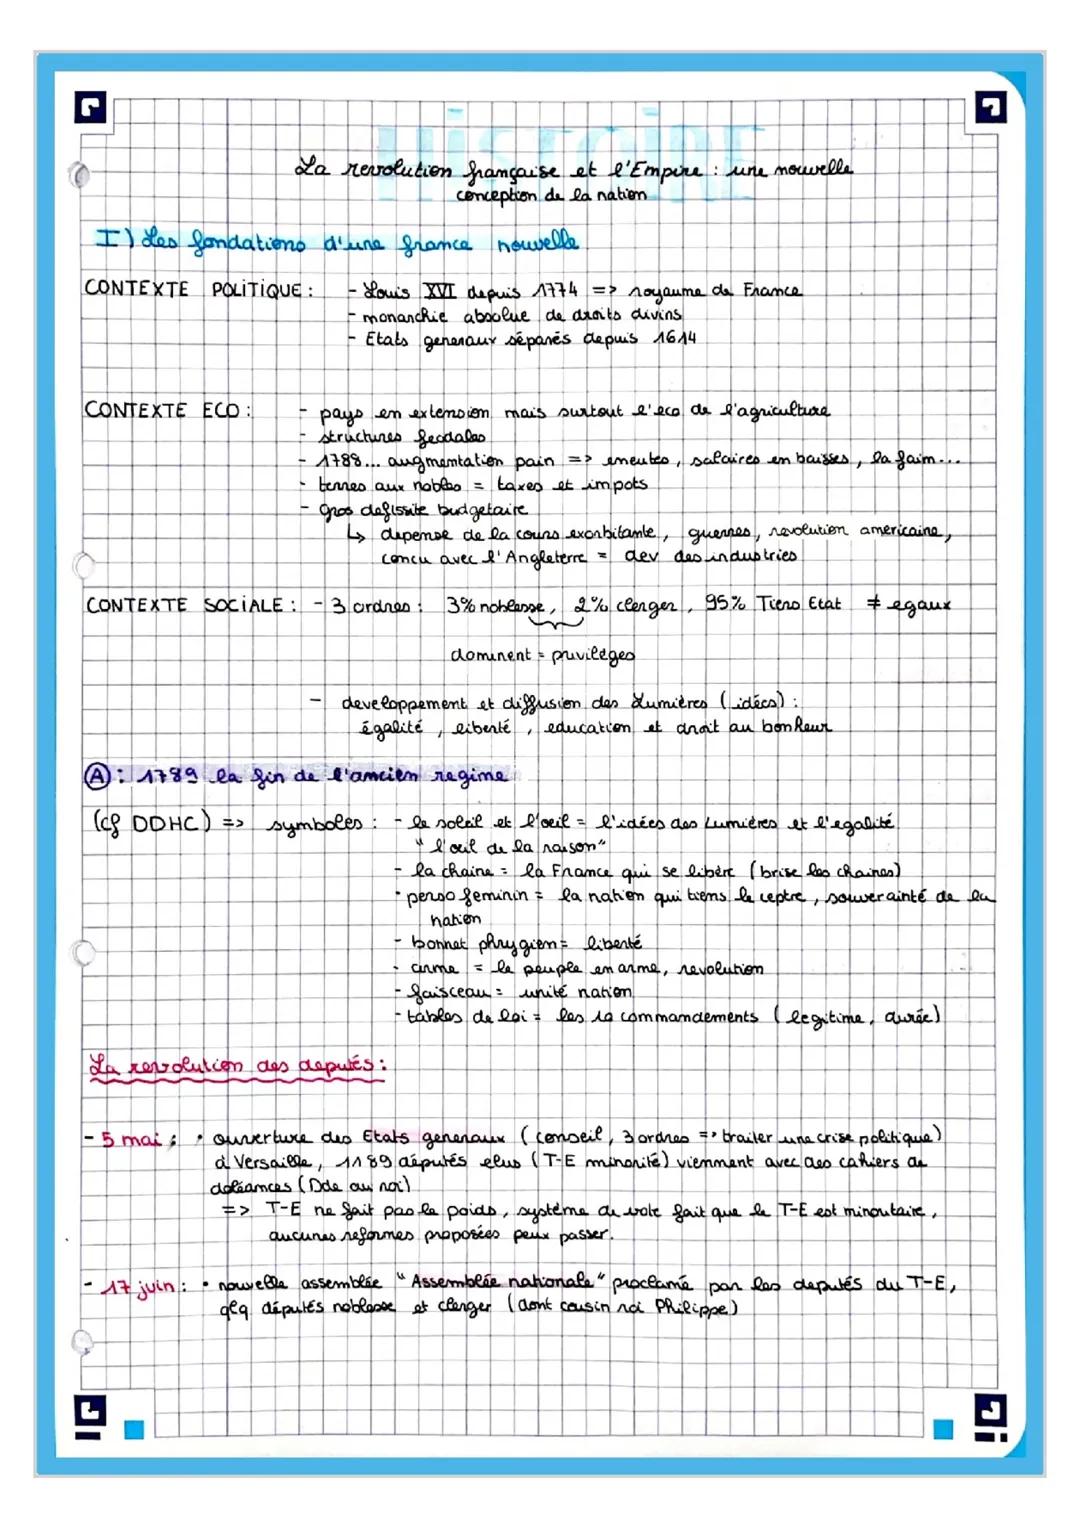 HiSTOiRE
La revolution française et l'Empire : une nouvelle
conception de la nation
I) Les fondations d'une france nouvelle
CONTEXTE POLITIQUE : - Louis XVI depuis 1774 => royaume de France
- monarchie absolue de droits divins
- Etats generaux séparés depuis 1614
CONTEXTE ECO : - pays en extension mais surtout l'eco de l'agriculture
- structures feodales
- 1788... augmentation pain => emeutes, salaires en baisses, la faim...
- terres aux nobles = taxes et impots
- gros defissite budgetaire
↳ depense de la cours exorbitante, guerres, revolution americaine,
concu avec l'Angleterre = dev des industries
CONTEXTE SOCIALE : - 3 ordres : 3% noblesse, 2% clerger, 95% Tiers Etat ≠ egaux
dominent = privilèges
- developpement et diffusion des Lumières (idées) :
égalité, liberté, education et droit au bonheur
A : 1789 la fin de l'ancien regime
(cf DDHC) => symboles : - le soleil et l'oeil = l'idées des Lumières et l'egalité
"l'oeil de la raison"
- la chaine = la France qui se libère (brise les chaines)
- perso feminin = la nation qui tiens le ceptre, souverainté de la
nation
- bonnet phrygien = liberté
- arme = le peuple en arme, revolution
- faisceau = unité nation
- tables de loi = les 10 commandements (legitime, durée)
La revolution des deputés :
- 5 mai : • ouverture des Etats generaux (conseil, 3 ordres => traiter une crise politique)
à Versaille, 1189 députés elus (T-E minorité) viennent avec des cahiers de
doléances (Dde au roi)
=> T-E ne fait pas le poids, système de vote fait que le T-E est minoritaire,
aucunes reformes proposées peux passer.
- 17 juin : • nouvelle assemblée "Assemblée nationale" proclamé par les deputés du T-E,
qlq députés noblesse et clerger (dont cousin roi Philippe)